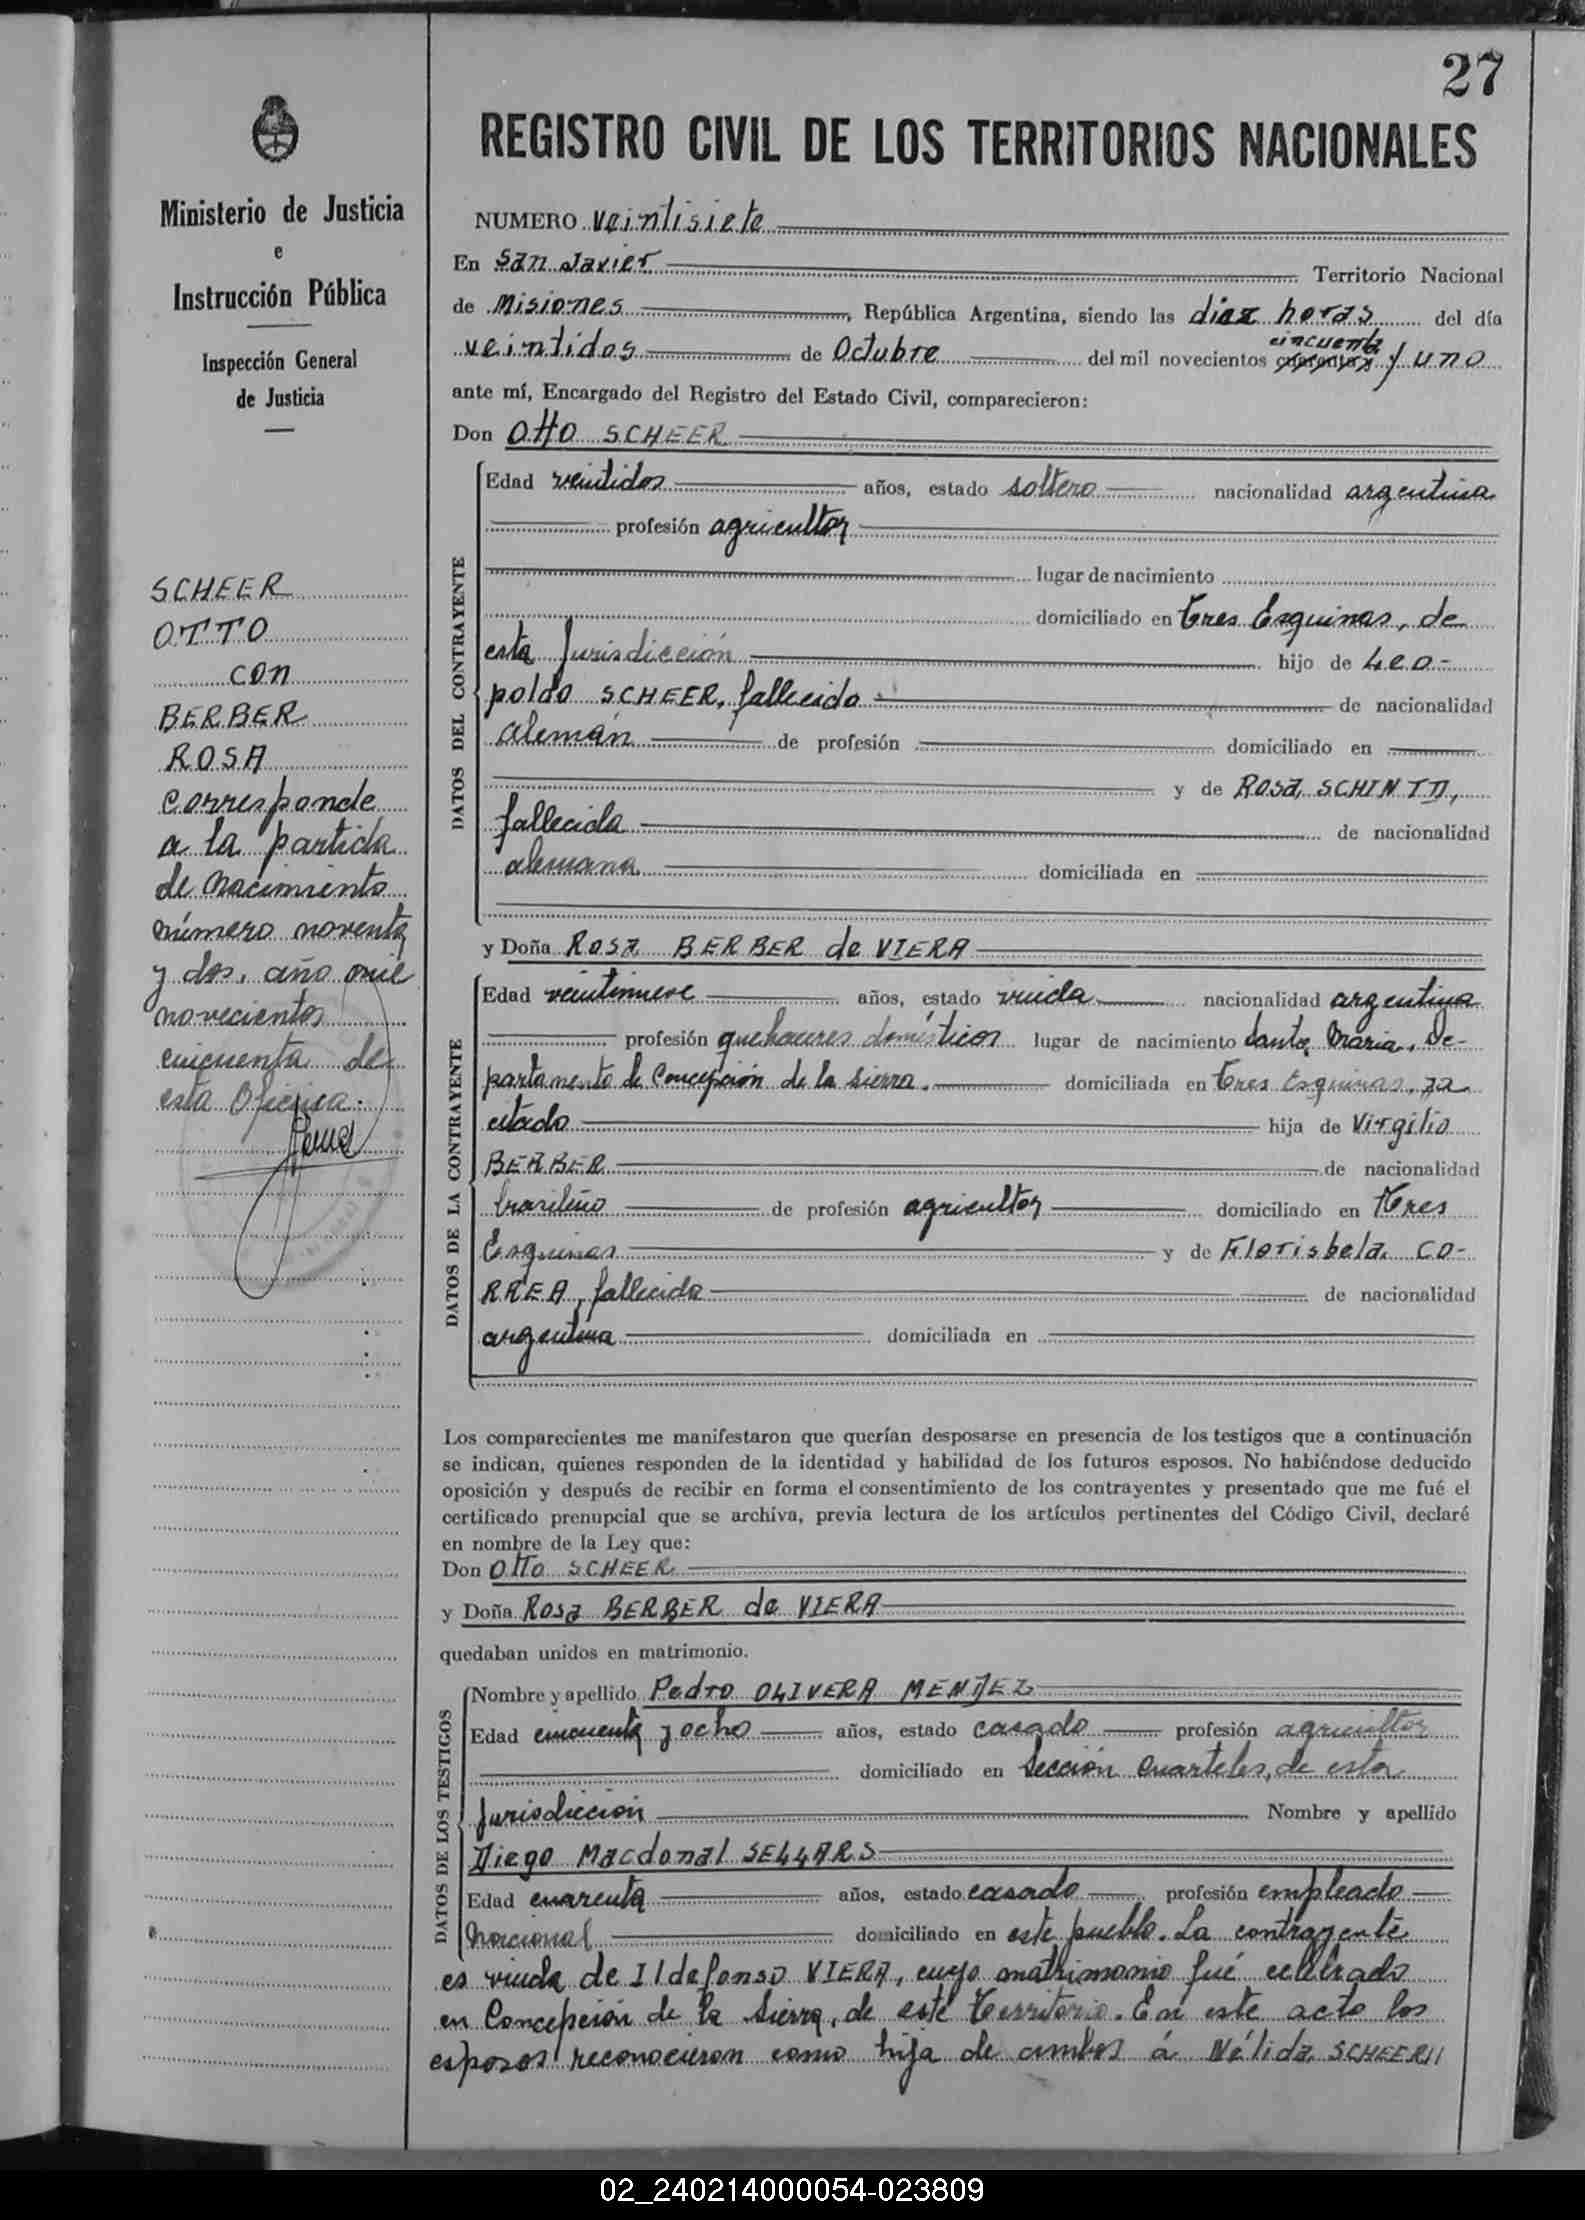 27
REGISTRO CIVIL DE LOS TERRITORIOS NACIONALES
Ministerio de Justicia
e
Instrucción Pública
Inspección General
de Justicia
SCHEER
OTTO
con
BERBER
ROSA
corresponde
a la partida
de nacimiento
número noventa
y dos, año mil
novecientos
cincuenta de
esta Oficina.
NUMERO veintisiete
En San Javier Territorio Nacional
de Misiones, República Argentina, siendo las diez horas del día
cincuenta
veintidos de Octubre del mil novecientos cuarenta y uno
ante mí, Encargado del Registro del Estado Civil, comparecieron:
Don Otto SCHEER
DATOS DEL CONTRAYENTE
Edad veintidos años, estado soltero nacionalidad argentina
profesión agricultor
lugar de nacimiento
domiciliado en Tres Esquinas, de
esta Jurisdicción hijo de Leo-
poldo SCHEER, fallecido de nacionalidad
alemán de profesión domiciliado en
y de Rosa
fallecida de nacionalidad
alemana domiciliada en
y Doña Rosa BERBER de VIERA
DATOS DE LA CONTRAYENTE
Edad veintinueve años, estado viuda nacionalidad argentina
profesión quehaceres domésticos lugar de nacimiento Santa María, De-
partamento de Concepción de la Sierra, domiciliada en Tres Esquinas, ya
citado hija de Virgilio
BERBER de nacionalidad
brasileño de profesión agricultor domiciliado en Tres
Esquinas y de Florisbela CO-
RREA, fallecida de nacionalidad
argentina domiciliada en
Los comparecientes me manifestaron que querían desposarse en presencia de los testigos que a continuación
se indican, quienes responden de la identidad y habilidad de los futuros esposos. No habiéndose deducido
oposición y después de recibir en forma el consentimiento de los contrayentes y presentado que me fué el
certificado prenupcial que se archiva, previa lectura de los artículos pertinentes del Código Civil, declaré
en nombre de la Ley que:
Don Otto SCHEER
y Doña Rosa BERBER de VIERA
quedaban unidos en matrimonio.
DATOS DE LOS TESTIGOS
Nombre y apellido Pedro OLIVERA MENDEZ
Edad cincuenta y ocho años, estado casado profesión agricultor
domiciliado en Sección Cuarteles, de esta
Jurisdicción Nombre y apellido
Diego Macdonal SELLARS
Edad cuarenta años, estado casado profesión empleado
Nacional domiciliado en este pueblo. La contrayente
es viuda de Ildefonso VIERA, cuyo matrimonio fué celebrado
en Concepción de la Sierra, de este Territorio. En este acto los
esposos reconocieron como hija de ambos á Nélida SCHEER//
02_240214000054-023809